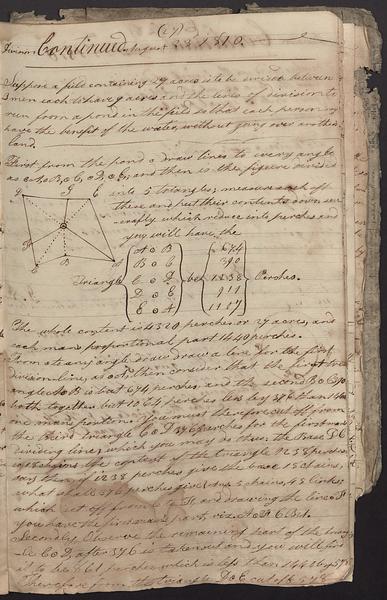 (21)
Division Continued August 23 1810.
Suppose a field containing 27 acres is to be divided between
3 men each to have 9 acres and the lines of division to
run from a pond in the field so that each person may
have the benefit of the water, without going over another's
land.
First from the pond o draw lines to every angle
as oA, oB, oC, oD, oE, and then is the figure divided
into 5 triangles, measure each of
these and put their contents down
which reduce into perches and
you will have the
Triangle
A o B
B o C
C o D
D o E
E o A
be
674
390
1238
911
1107
Perches.
The whole content is 4320 perches or 27 acres, and
each mans proportional part 1440 perches.
From o to any angle draw a line for the first
division line, as oA, then consider that the first tri
angle AoB is but 674 perches, and the second BoC 390
both together but 1064 perches less by 376 than 1440
one mans portion; you must therefore cut off from
the third triangle CoD 376 perches for the first mans
dividing line, which you may do thus, the Base DC
is chains the content of the triangle 1238 perches
say then if 1238 perches give the base 15 chains,
what shall 376 perches give
which set off from C to and drawing the line
you have the first mans part, viz.
Secondly Observe the remaining part of the trian
-le CoD, after 376 is taken out and you will find
it to be 861 perches which is less than 1440 by 578
Therefore from the triangle DoE cut off 578